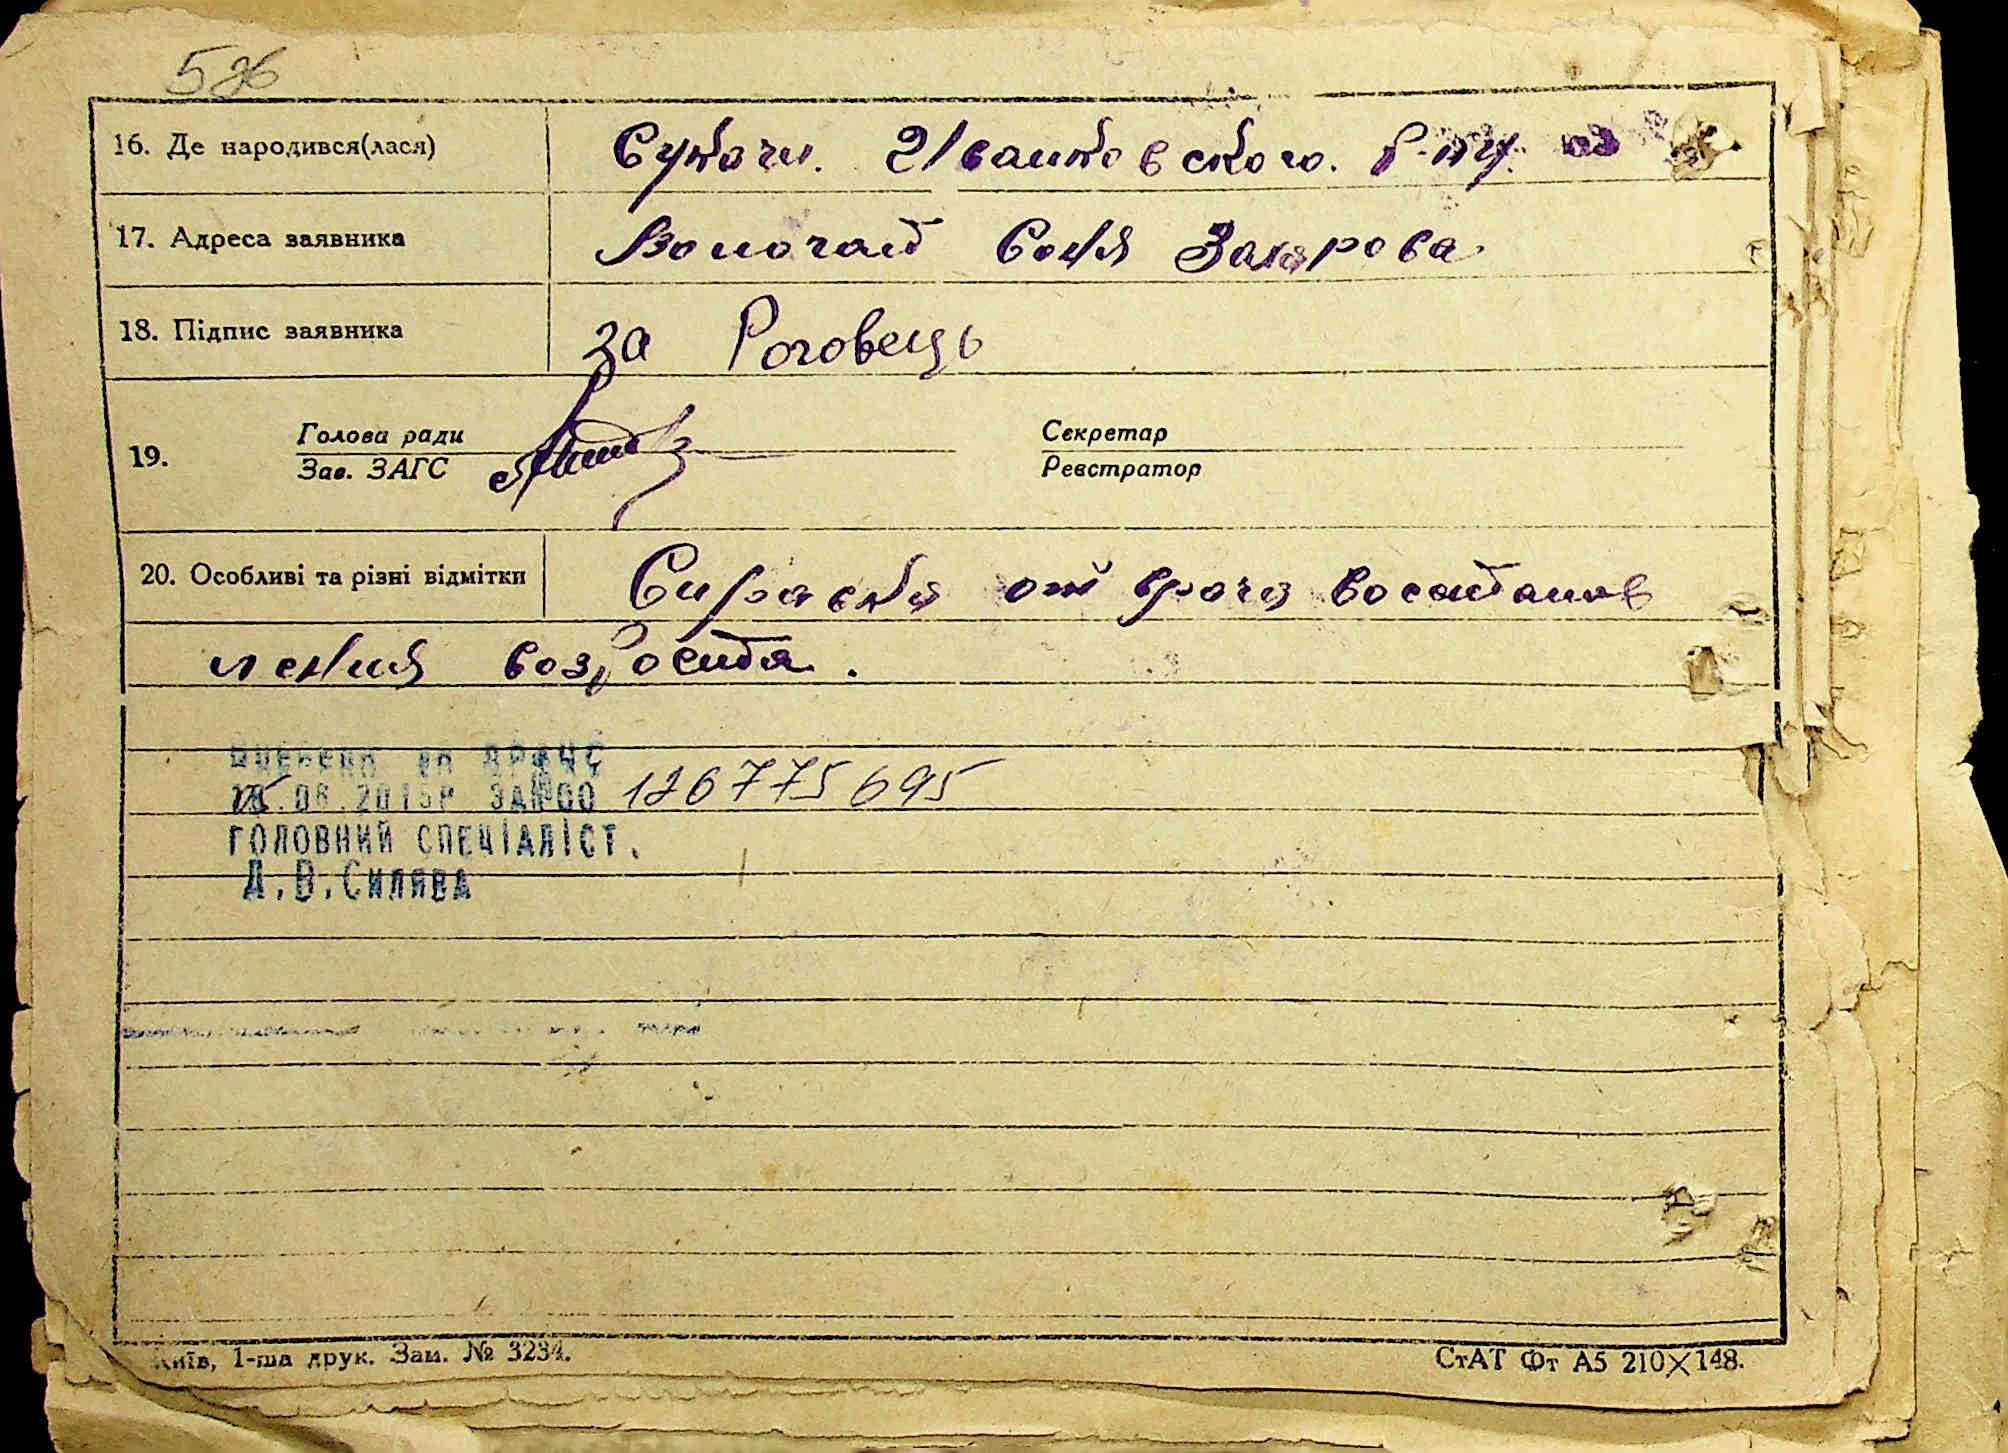 5зв
16. Де народився(лася) Сукачи. Иванковского. р-ну.
17. Адреса заявника Соня Захарова
18. Підпис заявника За Роговець
Голова ради Секретар
19.
Зав. ЗАГС Реєстратор
20. Особливі та різні відмітки Справка от врача восстанов
ления возроста.
внесено до ДРАЦС
.08.2015р ЗА№00 126775695
ГОЛОВНИЙ СПЕЦІАЛІСТ.
А.В.Силява
Київ, 1-ша друк. Зам. № 3234. СтАТ Фт А5 210×148.